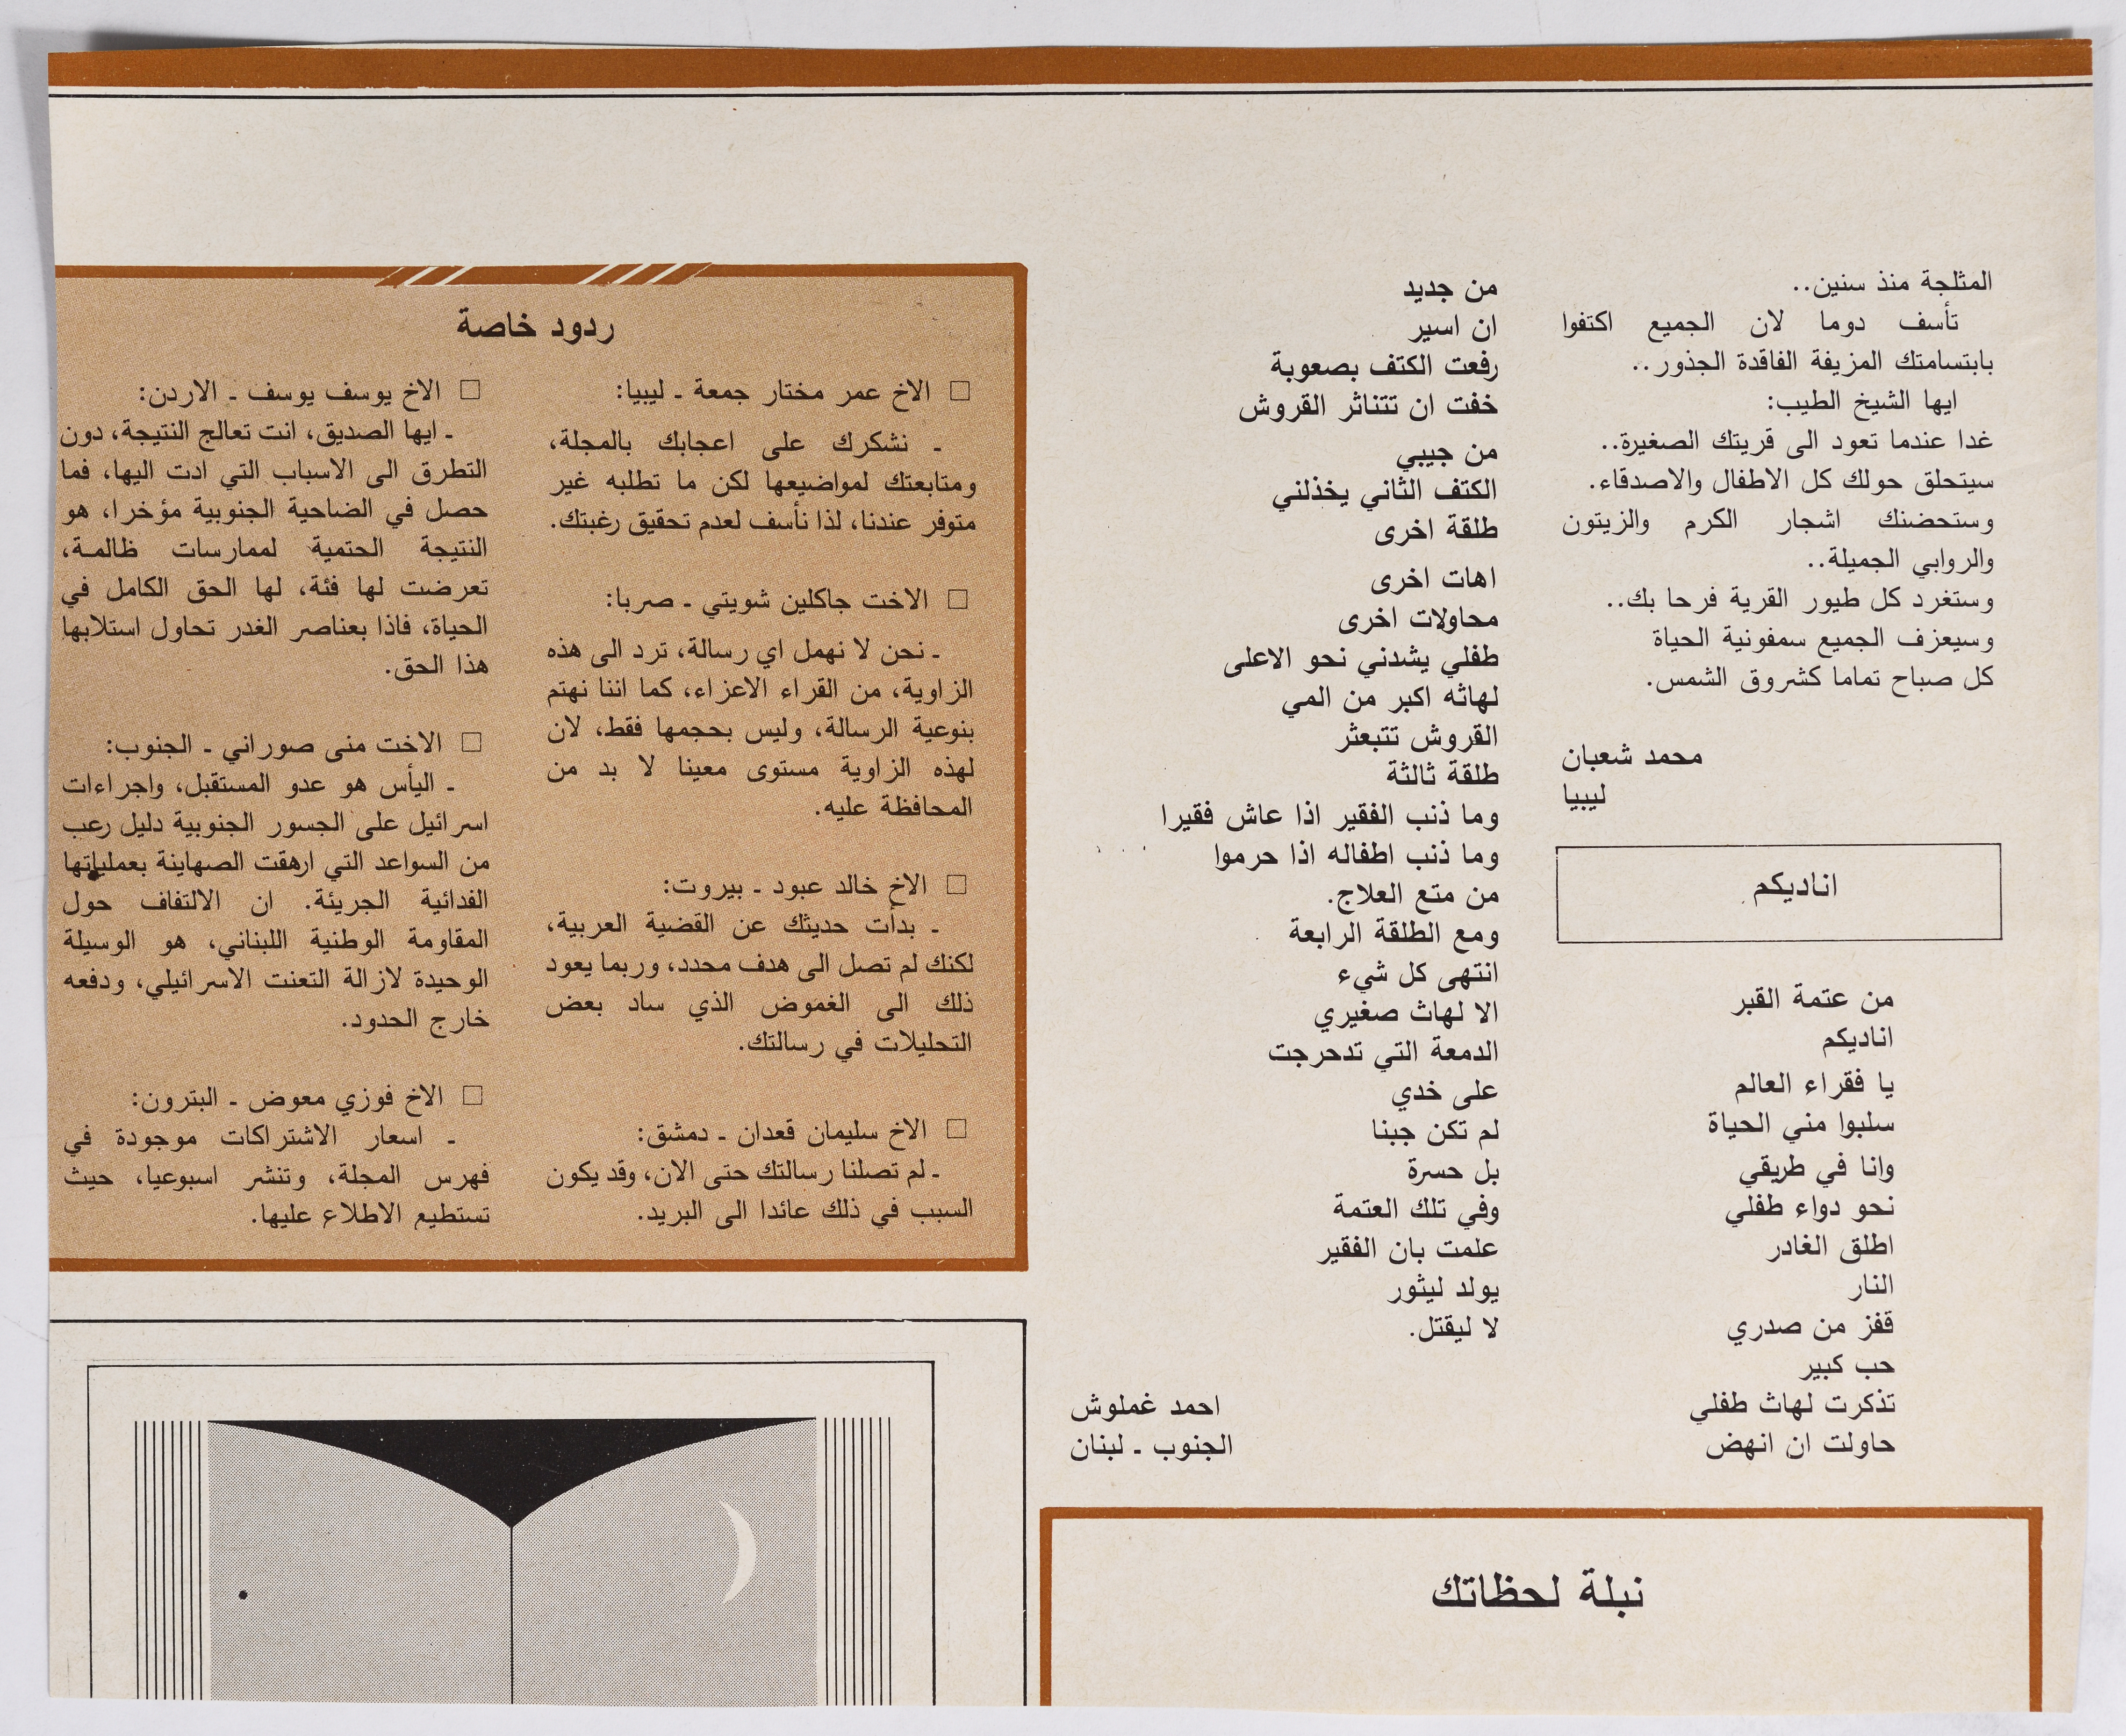 المثلجة منذ سنين..
تأسف دوما لان الجميع اكتفوا
بابتسامتك المزيفة الفاقدة الجذور..
ايها الشيخ الطيب:
غدا عندما تعود الى قريتك الصغيرة..
سيتحلق حولك كل الاطفال والاصدقاء.
وستحضنك اشجار الكرم والزيتون
والروابي الجميلة..
وستغرد كل طيور القرية فرحا بك..
وسيعزف الجميع سمفونية الحياة
كل صباح تماما كشروق الشمس.
محمد شعبان
ليبيا
اناديكم
من عتمة القبر
اناديكم
يا فقراء العالم
سلبوا مني الحياة
وانا في طريقي
نحو دواء طفلي
اطلق الغادر
النار
قفز من صدري
حب كبير
تذكرت لهاث طفلي
حاولت ان انهض
من جديد
ان اسير
رفعت الكتف بصعوبة
خفت ان تتناثر القروش
من جيبي
الكتف الثاني يخذلني
طلقة اخرى
اهات اخرى
محاولات اخرى
طفلي يشدني نحو الاعلى
لهاثه اكبر من المي
القروش تتبعثر
طلقة ثالثة
وما ذنب الفقير اذا عاش فقيرا
وما ذنب اطفاله اذا حرموا
من متع العلاج.
ومع الطلقة الرابعة
انتهى كل شيء
الا لهاث صغيري
الدمعة التي تدحرجت
على خدي
لم تكن جبنا
بل حسرة
وفي تلك العتمة
علمت بان الفقير
يولد ليثور
لا ليقتل.
احمد غملوش
الجنوب ـ لبنان
ردود خاصة
□ الاخ عمر مختار جمعة ـ ليبيا:
ـ نشكرك على اعجابك بالمجلة،
ومتابعتك لمواضيعها لكن ما تطلبه غير
متوفر عندنا، لذا نأسف لعدم تحقيق رغبتك.
□ الاخت جاكلين شويتي ـ صربا:
ـ نحن لا نهمل اي رسالة، ترد الى هذه
الزاوية، من القراء الاعزاء، كما اننا نهتم
بنوعية الرسالة، وليس بحجمها فقط، لان
لهذه الزاوية مستوى معينا لا بد من
المحافظة عليه.
□ الاخ خالد عبود ـ بيروت:
ـ بدأت حديثك عن القضية العربية،
لكنك لم تصل الى هدف محدد، وربما يعود
ذلك الى الغموض الذي ساد بعض
التحليلات في رسالتك.
□ الاخ سليمان قعدان ـ دمشق:
ـ لم تصلنا رسالتك حتى الان، وقد يكون
السبب في ذلك عائدا الى البريد.
□ الاخ يوسف يوسف ـ الاردن:
ـ ايها الصديق، انت تعالج النتيجة، دون
التطرق الى الاسباب التي ادت اليها، فما
حصل في الضاحية الجنوبية مؤخرا، هو
النتيجة الحتمية لممارسات ظالمة،
تعرضت لها فئة، لها الحق الكامل في
الحياة، فاذا بعناصر الغدر تحاول استلابها
هذا الحق.
□ الاخت منى صوراني ـ الجنوب:
ـ اليأس هو عدو المستقبل، واجراءات
اسرائيل على الجسور الجنوبية دليل رعب
من السواعد التي ارهقت الصهاينة بعملياتها
الفدائية الجريئة. ان الالتفاف حول
المقاومة الوطنية اللبناني، هو الوسيلة
الوحيدة لازالة التعنت الاسرائيلي، ودفعه
خارج الحدود.
□ الاخ فوزي معوض ـ البترون:
ـ اسعار الاشتراكات موجودة في
فهرس المجلة، وتنشر اسبوعيا، حيث
تستطيع الاطلاع عليها.
نبلة لحظاتك